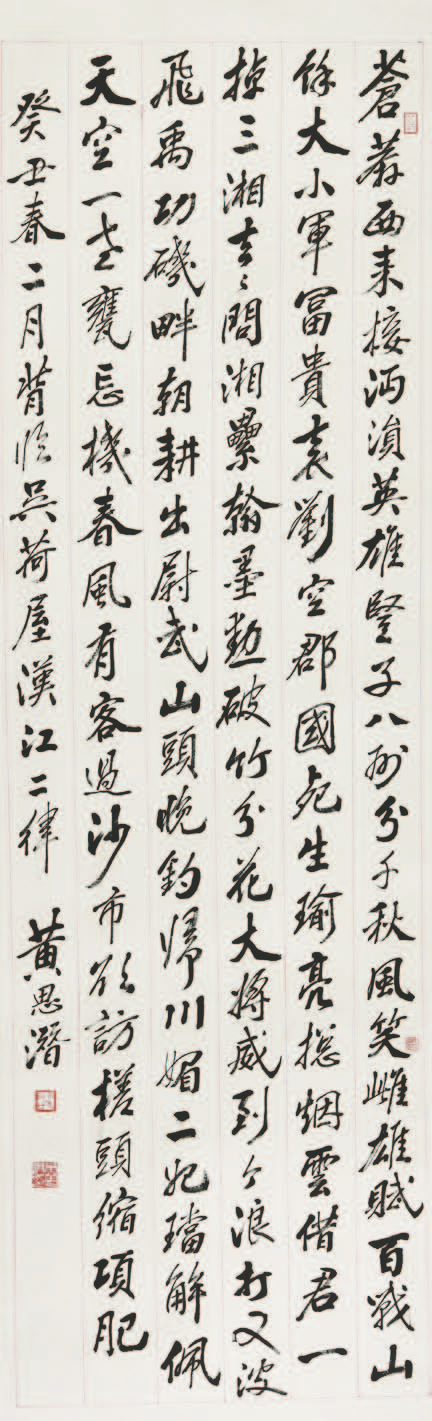 蒼莽西来接沔溳英雄豎子八州分千秋風笑雌雄賦百戰山
餘大小軍冨貴袁劉空郡國死生瑜亮捴烟雲借君一
掉三湘去〻問湘纍翰墨勳破竹分花大將威到今浪打又波
飛禹功磯畔朝耕出尉武山頭晚釣歸川媚二妃璫解佩
天空一老甕忘機春風有客過沙市欲訪槎頭縮項肥
癸丑春二月背临吳荷屋漢江二律 黄思潛